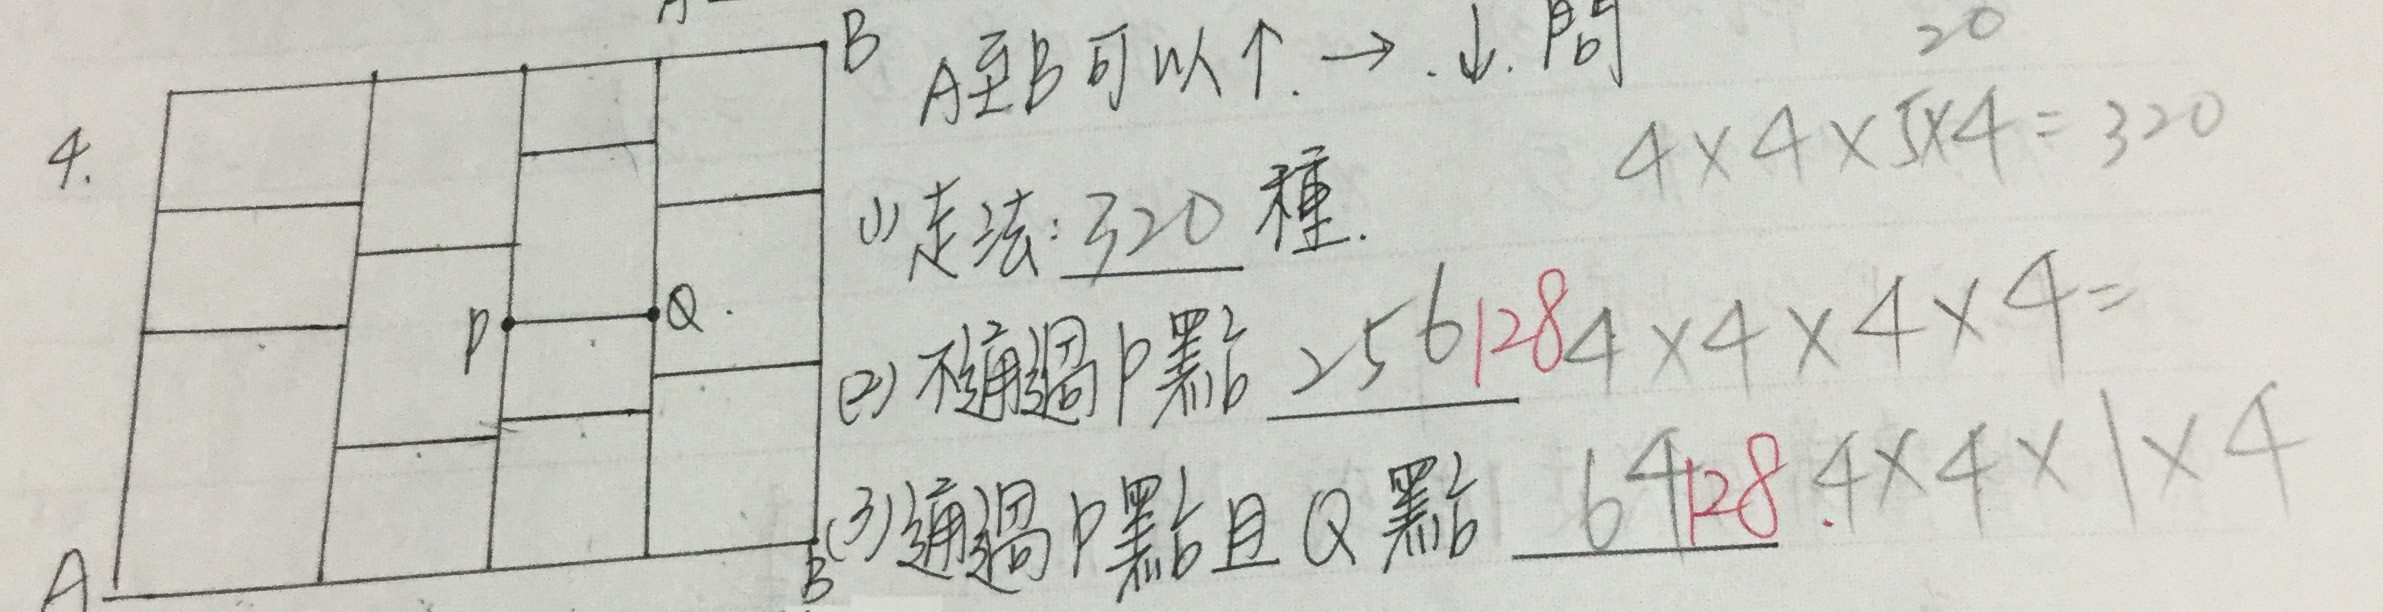 4.
B
A至B可以↑.→.↓.問
20
4×4×5×4=320
(1)走法:320種.
P
Q.
(2)不通過P點 256 128 4×4×4×4=
(3)通過P點且Q點 64 128 4×4×1×4
A
B